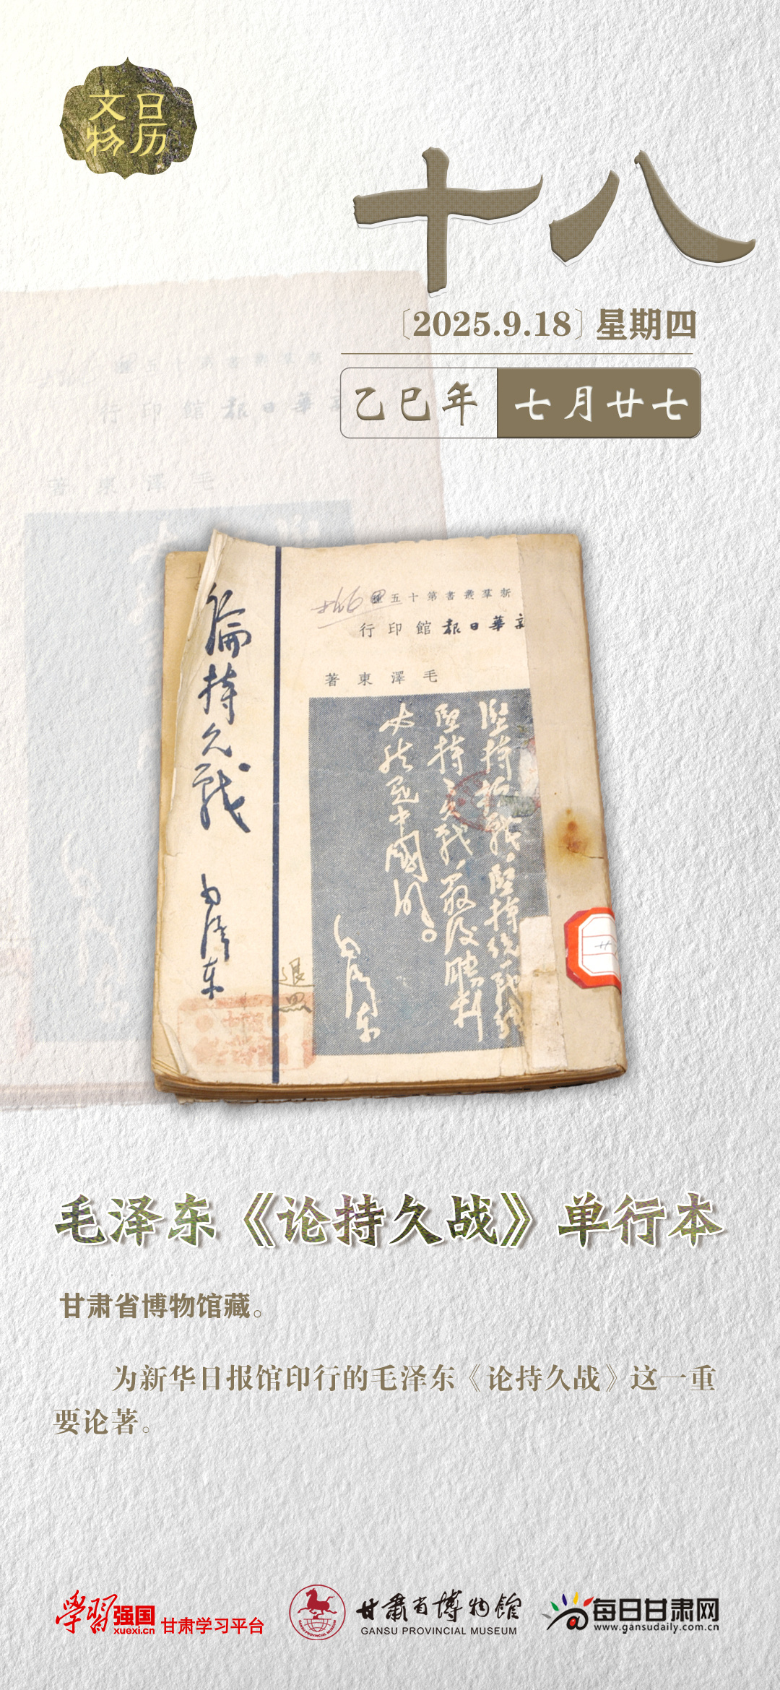 文物
日历
十八
〔2025.9.18〕星期四
乙巳年 七月廿七
新羣叢書第十五
行印館報日華新
著東澤毛
論持久戰
毛泽东
堅持抗戰,堅持統一戰線
堅持久戰,最後勝利
必然是中國的。
毛泽东
毛泽东《论持久战》单行本
甘肃省博物馆藏。
为新华日报馆印行的毛泽东《论持久战》这一重
要论著。
学习强国
xuexi.cn
甘肃学习平台
甘肃省博物馆
GANSU PROVINCIAL MUSEUM
每日甘肃网
www.gansudaily.com.cn